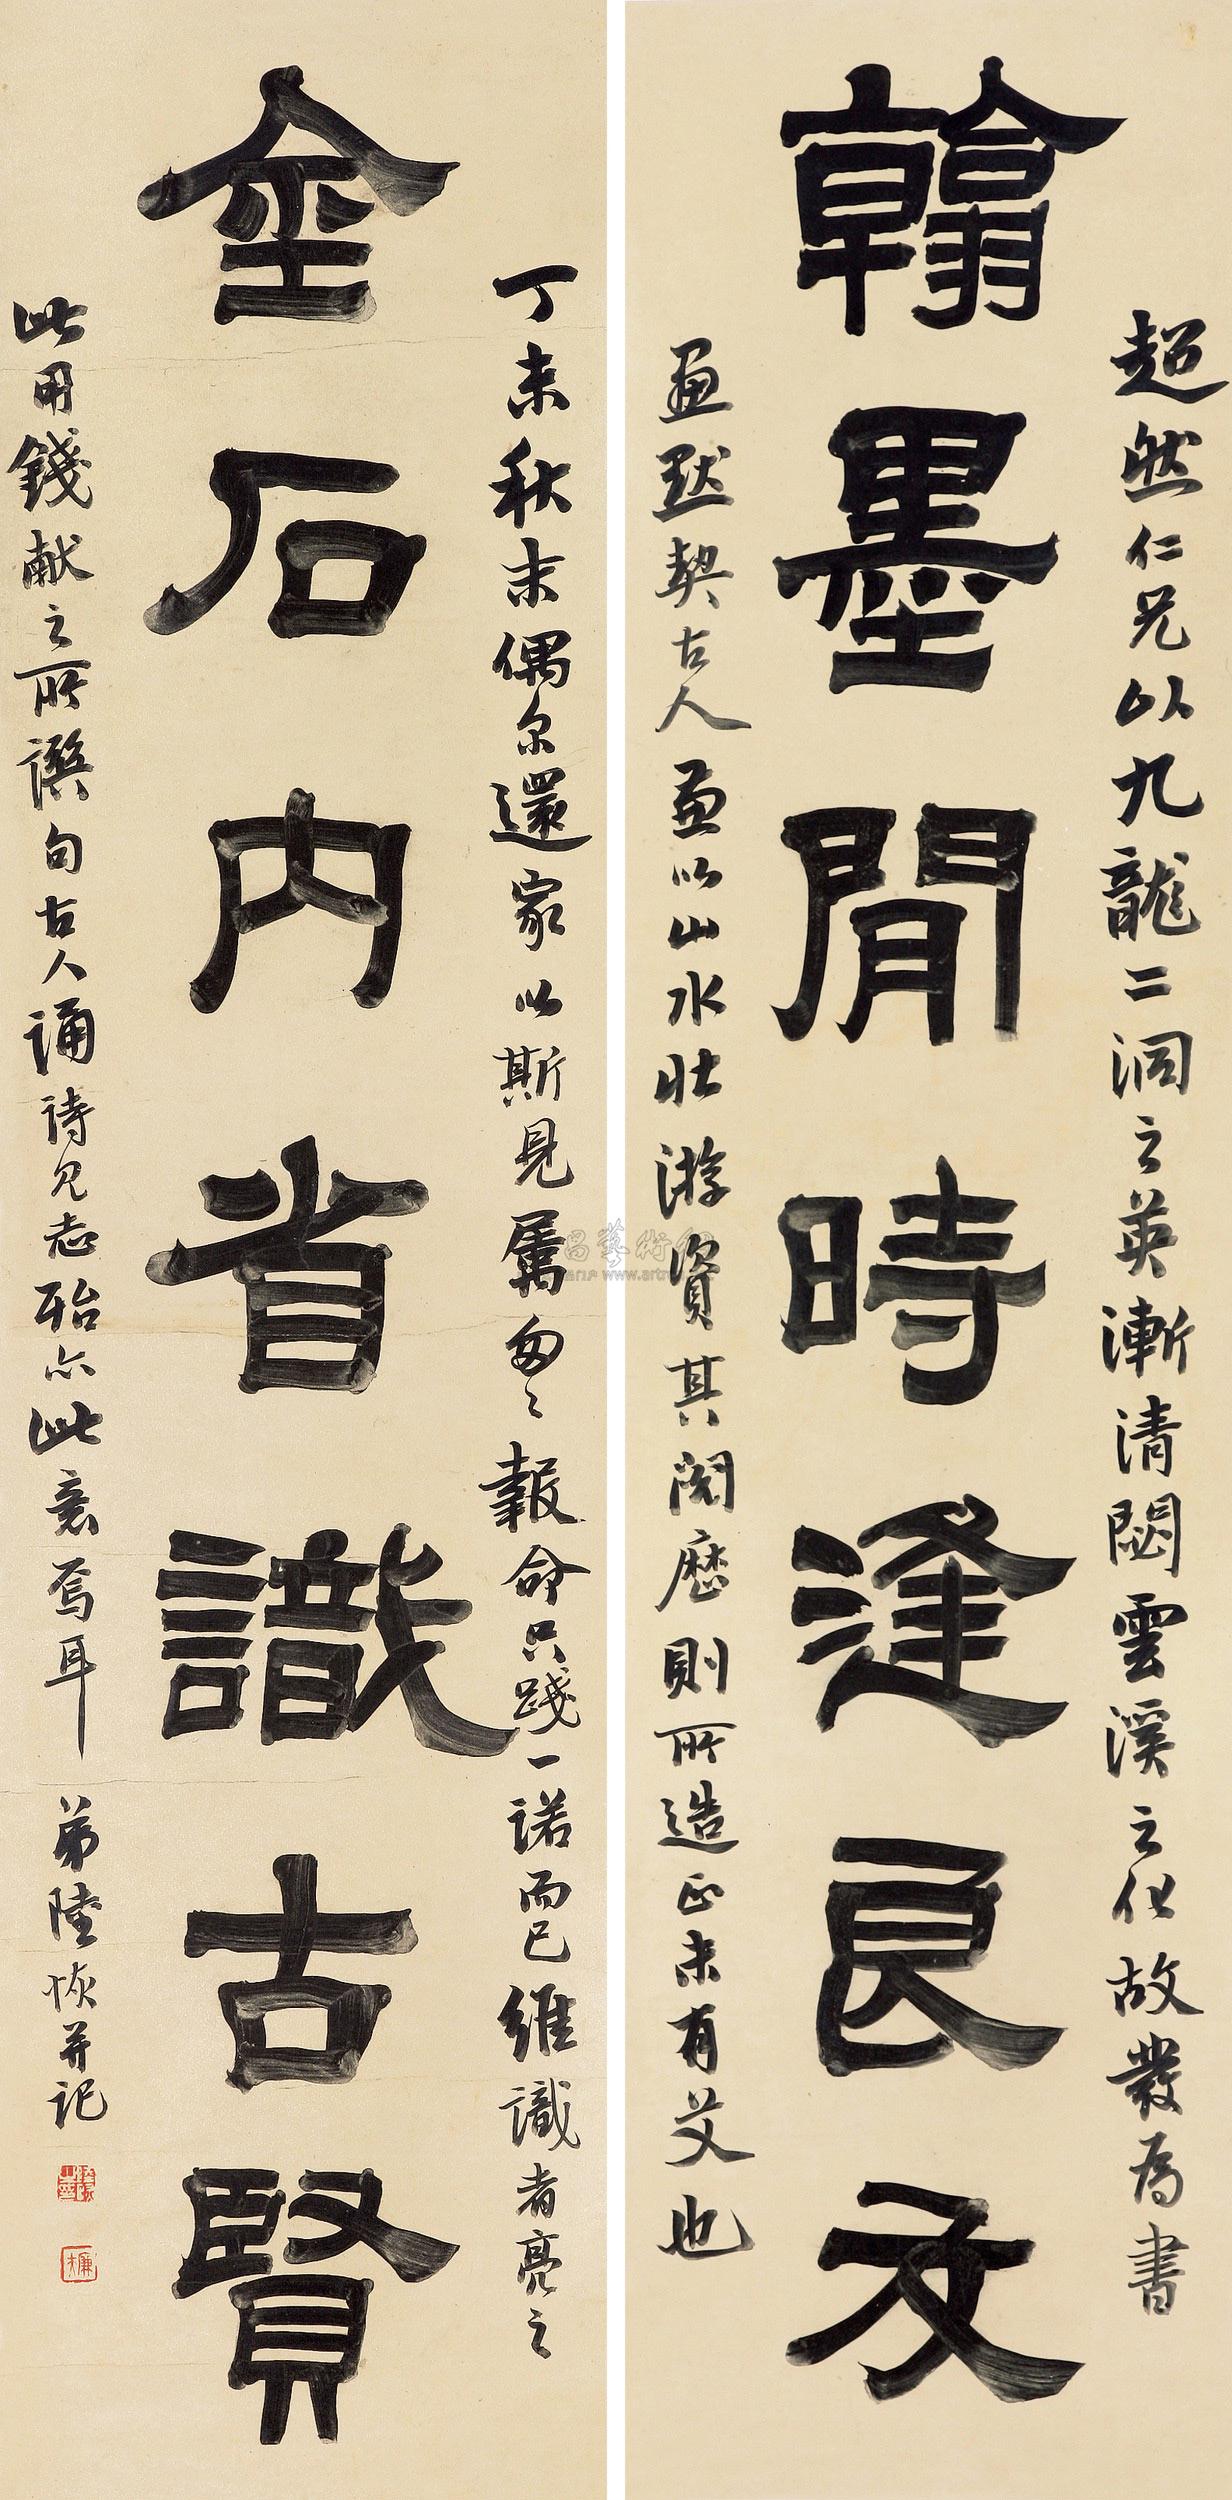 翰墨閒時逢良友
超然仁兄以九龍二洞之英漸清閟雲溪之化故發為書
畫默契古人並以山水壯游資其閱歷則所造正未有艾也
金石內省識古賢
丁未秋末偶尔還家以斯見屬匆匆報命只踐一諾而已維識者亮之
此用錢獻之所譔句古人誦詩見志殆亦此意焉耳
弟陸恢并記